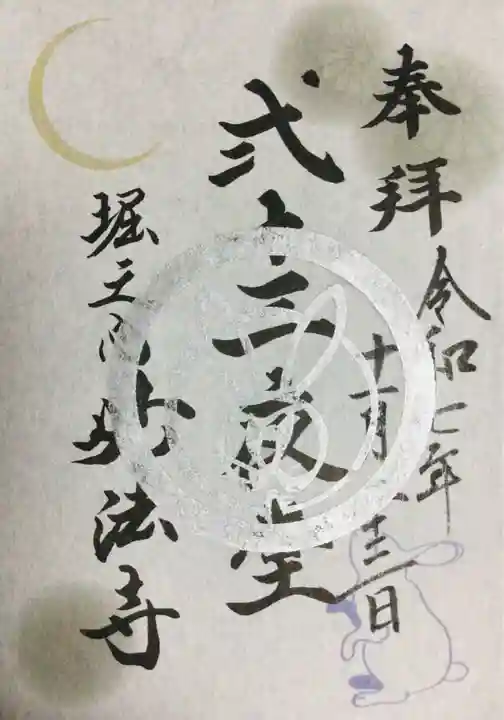 奉拝
令和七年
十一月二十三日
弐十三夜堂
堀之内妙法寺